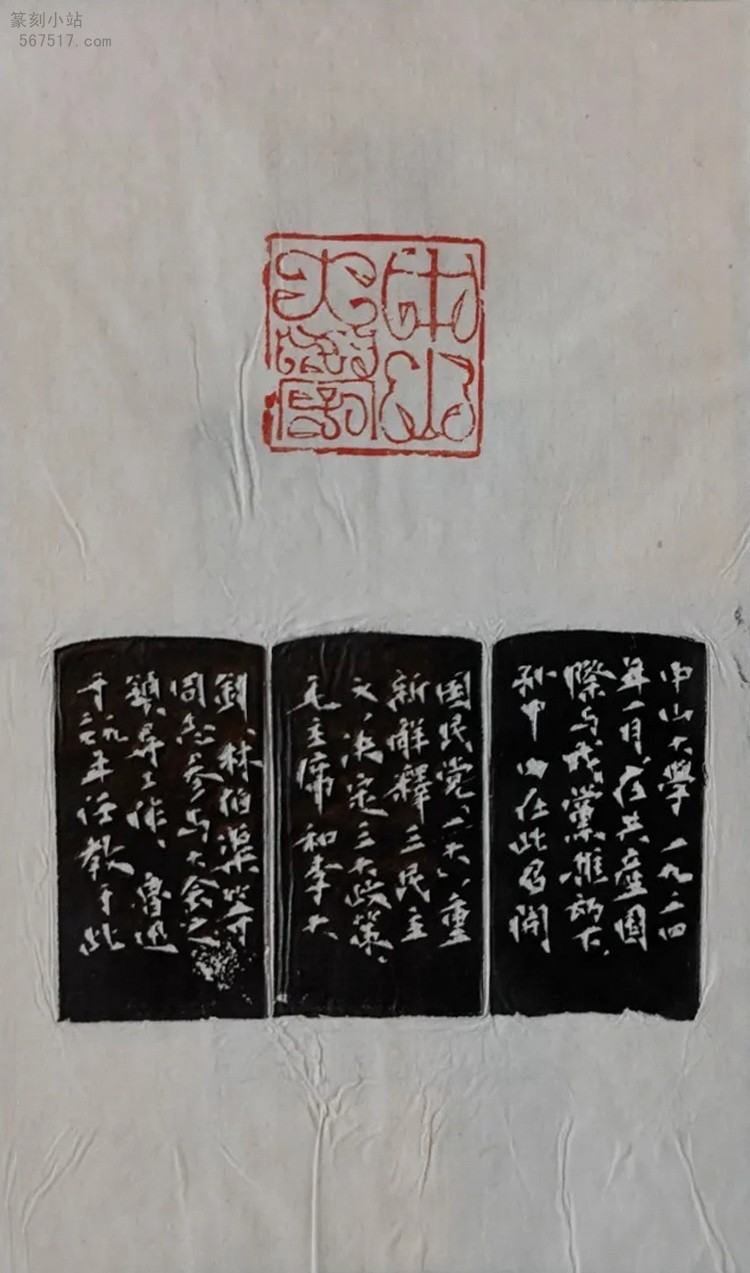 篆刻小站
567517.com
中山
大學
中山大學 一九二四
年一月，在共產國
際与我黨推动下、
孙中山在此召開
国民党“一大”，重
新解釋三民主
义，决定三大政策、
毛主席和李大
釗、林伯渠等
同志参与大会之
領导工作、魯迅
于二七年任教于此